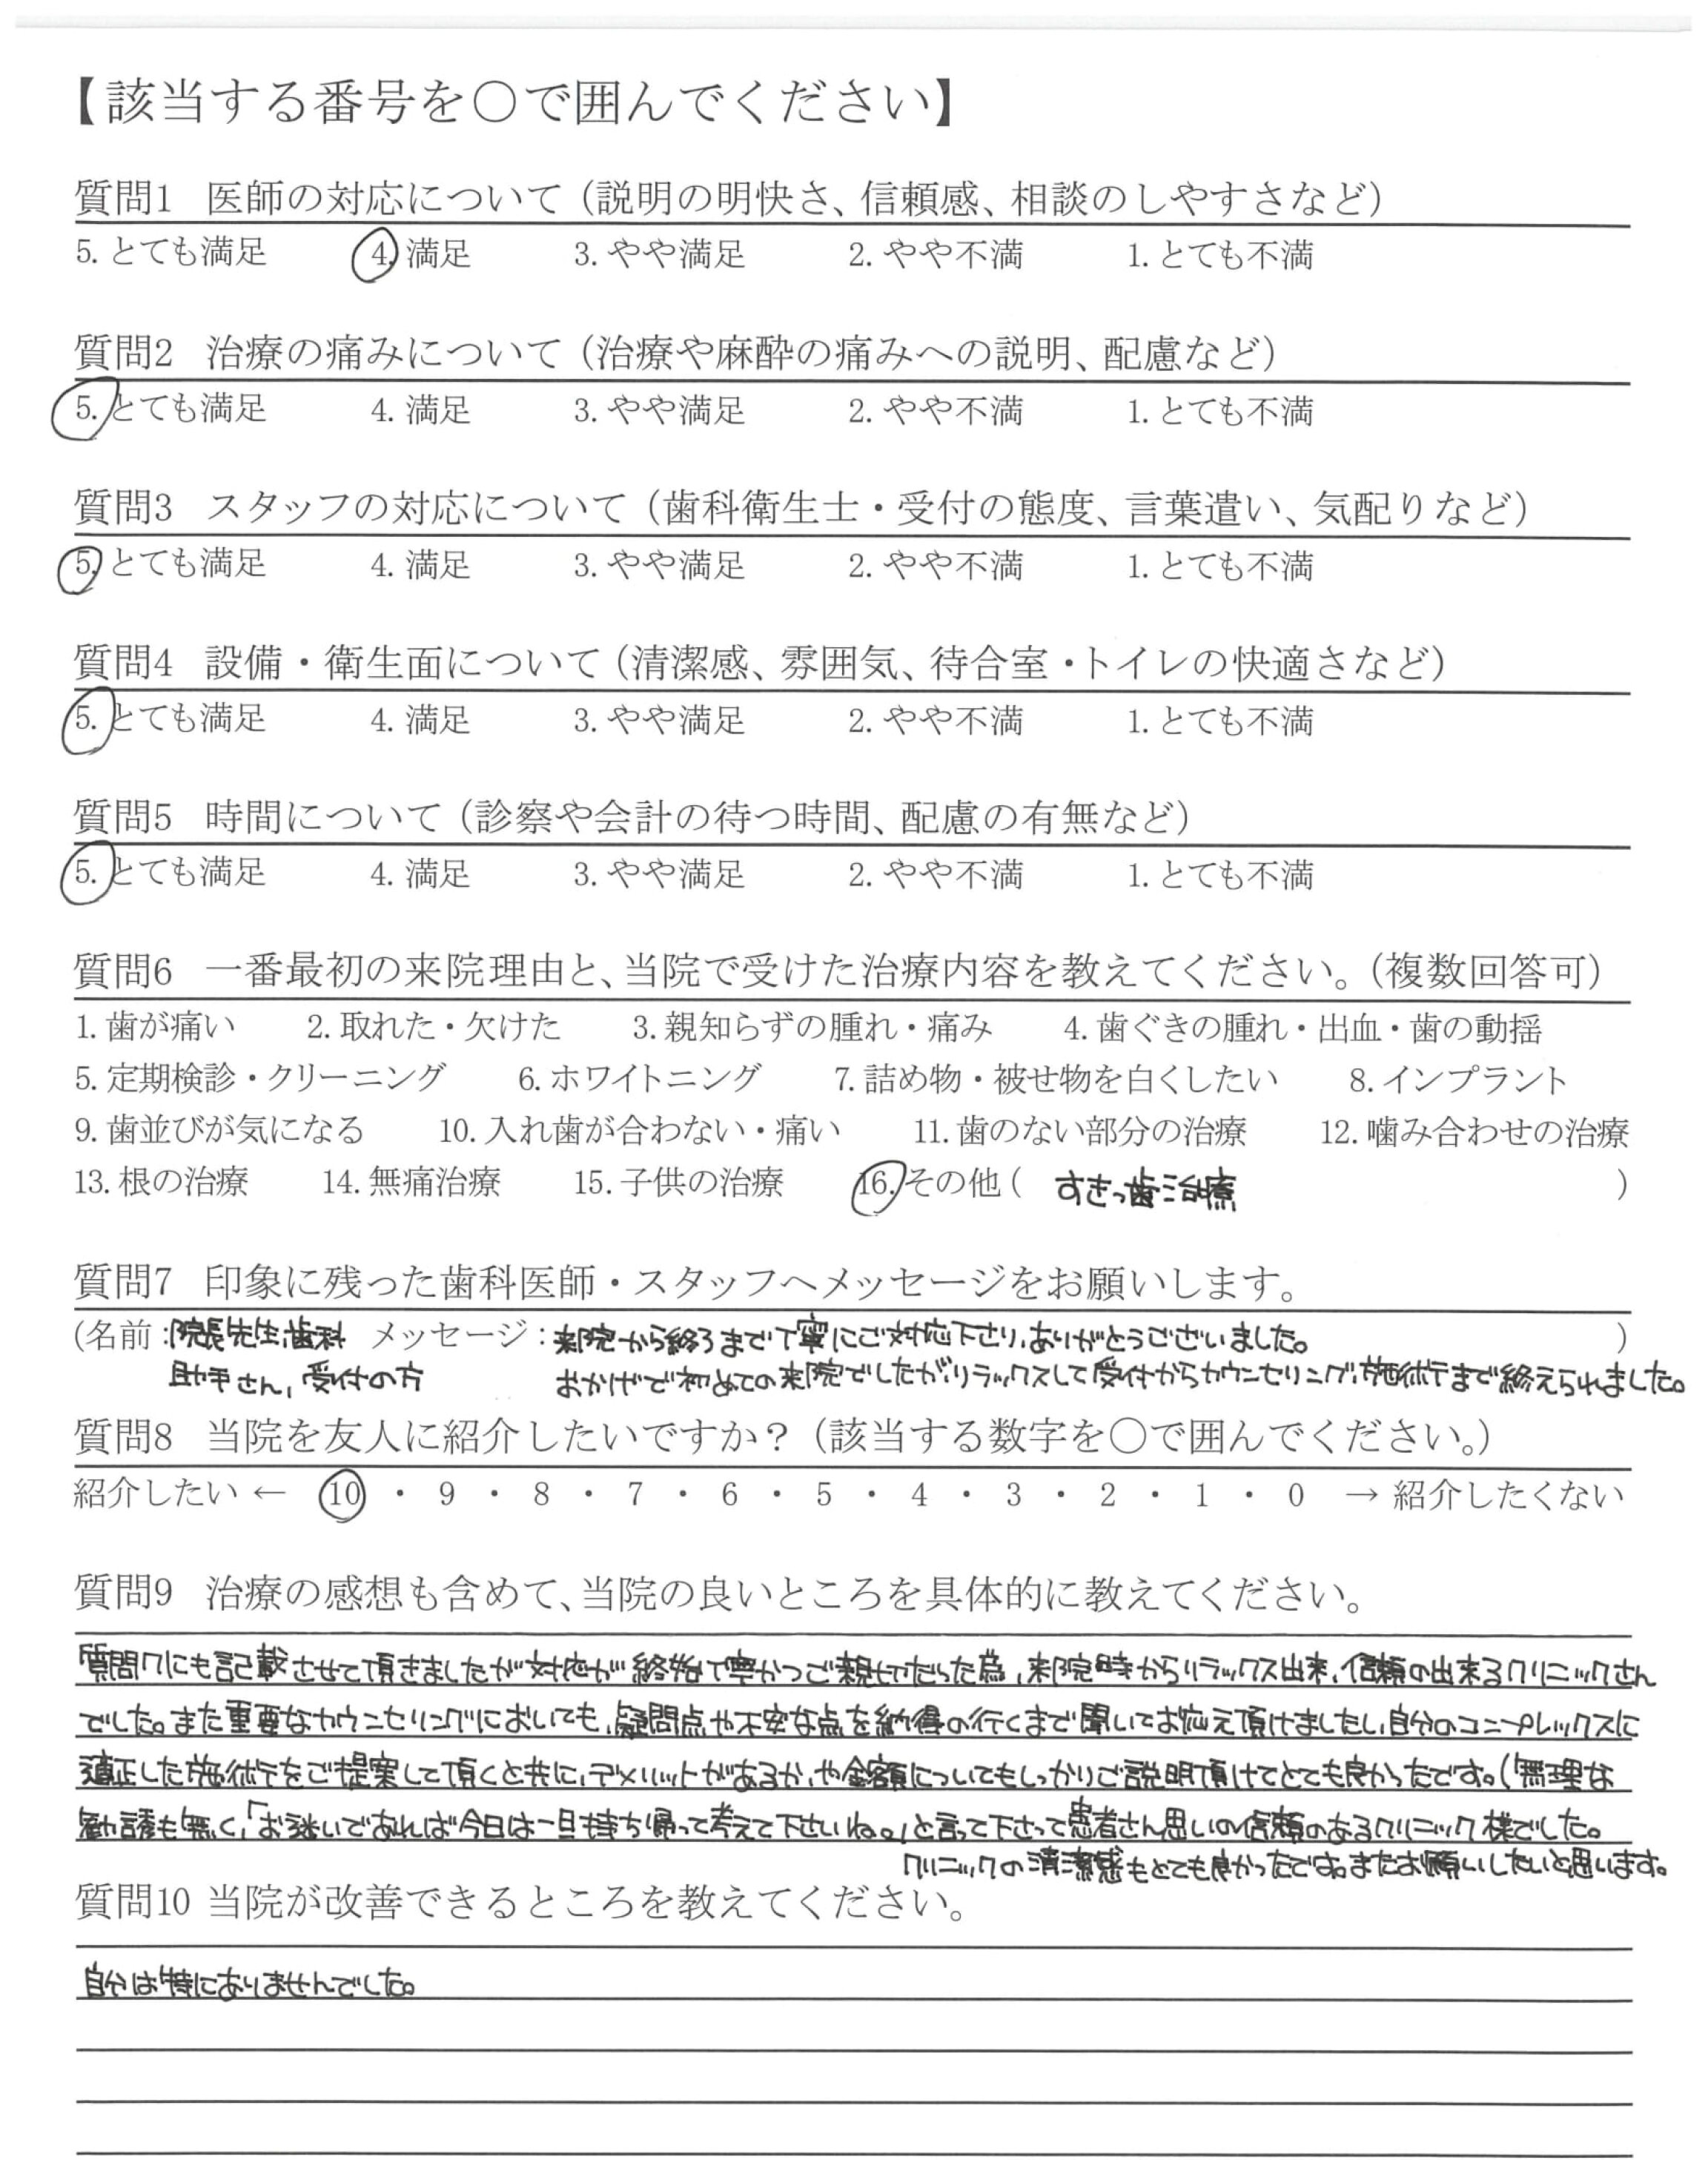 【該当する番号を〇で囲んでください】
質問1 医師の対応について（説明の明快さ、信頼感、相談のしやすさなど）
5. とても満足 4. 満足 3. やや満足 2. やや不満 1. とても不満
質問2 治療の痛みについて（治療や麻酔の痛みへの説明、配慮など）
5. とても満足 4. 満足 3. やや満足 2. やや不満 1. とても不満
質問3 スタッフの対応について（歯科衛生士・受付の態度、言葉遣い、気配りなど）
5. とても満足 4. 満足 3. やや満足 2. やや不満 1. とても不満
質問4 設備・衛生面について（清潔感、雰囲気、待合室・トイレの快適さなど）
5. とても満足 4. 満足 3. やや満足 2. やや不満 1. とても不満
質問5 時間について（診察や会計の待つ時間、配慮の有無など）
5. とても満足 4. 満足 3. やや満足 2. やや不満 1. とても不満
質問6 一番最初の来院理由と、当院で受けた治療内容を教えてください。（複数回答可）
1. 歯が痛い 2. 取れた・欠けた 3. 親知らずの腫れ・痛み 4. 歯ぐきの腫れ・出血・歯の動揺
5. 定期検診・クリーニング 6. ホワイトニング 7. 詰め物・被せ物を白くしたい 8. インプラント
9. 歯並びが気になる 10. 入れ歯が合わない・痛い 11. 歯のない部分の治療 12. 噛み合わせの治療
13. 根の治療 14. 無痛治療 15. 子供の治療 16. その他（ すきっ歯治療 ）
質問7 印象に残った歯科医師・スタッフへメッセージをお願いします。
（名前：院長先生歯科 メッセージ：来院から終ろまで丁寧にご対応下さり、ありがとうございました。 ）
助手さん、受付の方 おかげで初めての来院でしたがリラックスして受付からカウンセリング、施術まで終えられました。
質問8 当院を友人に紹介したいですか？（該当する数字を〇で囲んでください。）
紹介したい ← 10 ・ 9 ・ 8 ・ 7 ・ 6 ・ 5 ・ 4 ・ 3 ・ 2 ・ 1 ・ 0 → 紹介したくない
質問9 治療の感想も含めて、当院の良いところを具体的に教えてください。
質問7にも記載させて頂きましたが対応が終始丁寧かつご親切だった為、来院時からリラックス出来、信頼の出来るクリニックさん
でした。また重要なカウンセリングにおいても、疑問点や不安な点を納得の行くまで聞いてお応え頂けましたし、自分のコンプレックスに
適正した施術をご提案して頂くと共に、デメリットがあるか、や金額についてもしっかりご説明頂けてとても良かったです。（無理な
勧誘も無く、「お迷いであれば今日は一旦持ち帰って考えて下さいね。」と言って下さって患者さん思いの信頼のあるクリニック様でした。
クリニックの清潔感もとても良かったです。またお願いしたいと思います。
質問10 当院が改善できるところを教えてください。
自分は特にありませんでした。